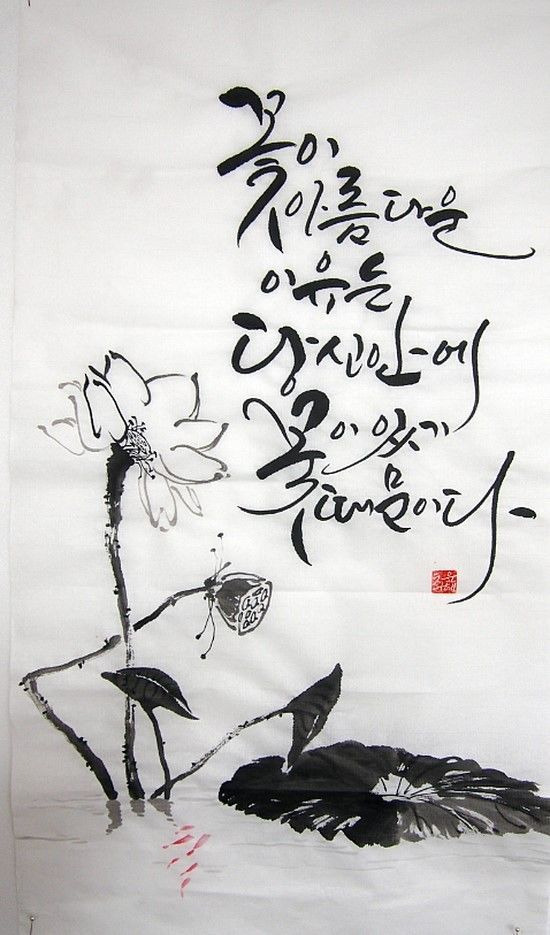 꽃이
아름다운
이유는
당신안에
꽃이 있기
때문이다